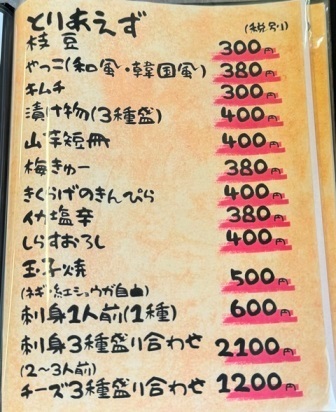 とりあえず (税別)
枝豆 300円
やっこ(和風・韓国風) 380円
キムチ 300円
漬け物(3種盛) 400円
山芋短冊 400円
梅きゅー 380円
きくらげのきんぴら 400円
イカ塩辛 380円
しらすおろし 400円
玉子焼 500円
(ネギ・紅ショウガ自由)
刺身1人前(1種) 600円
刺身3種盛り合わせ 2100円
(2〜3人前)
チーズ3種盛り合わせ 1200円